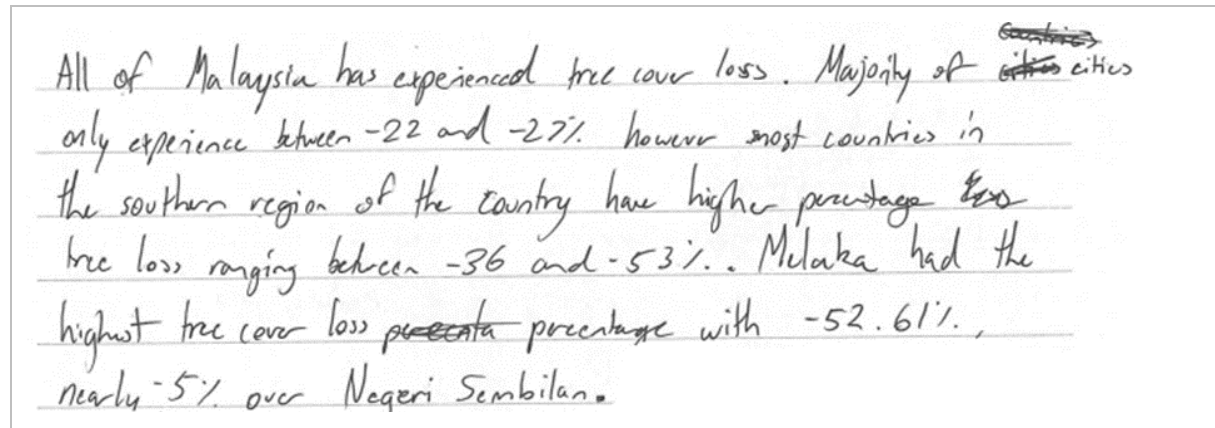 All of Malaysia has experienced tree cover loss. Majority of cities
only experience between -22 and -27% however most countries in
the southern region of the country have higher percentage
tree loss ranging between -36 and -53%. Melaka had the
highest tree cover loss percentage with -52.61%,
nearly -5% over Negeri Sembilan.